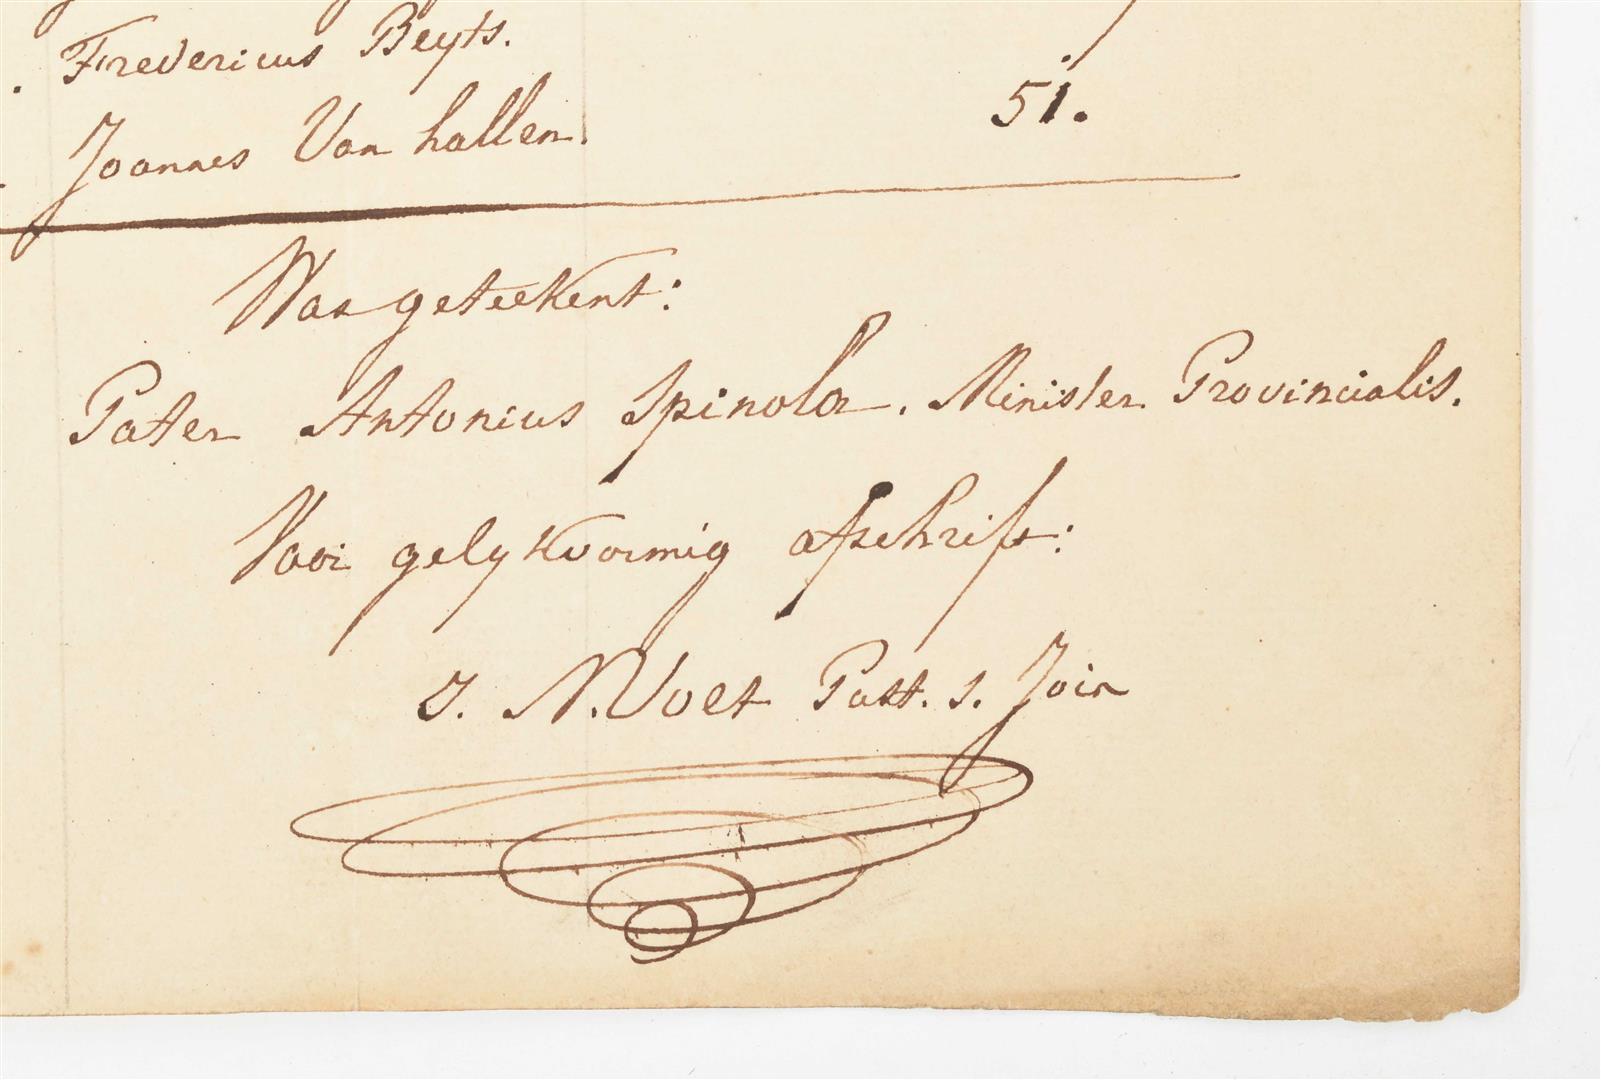 . Fredericus Beyts.
. Joannes Van hallen. 51.
Was geteekent:
Pater Antonius Spinola. Minister Provincialis.
Voor gelykvormig afschrift:
J. N. Voet Past. s. Join